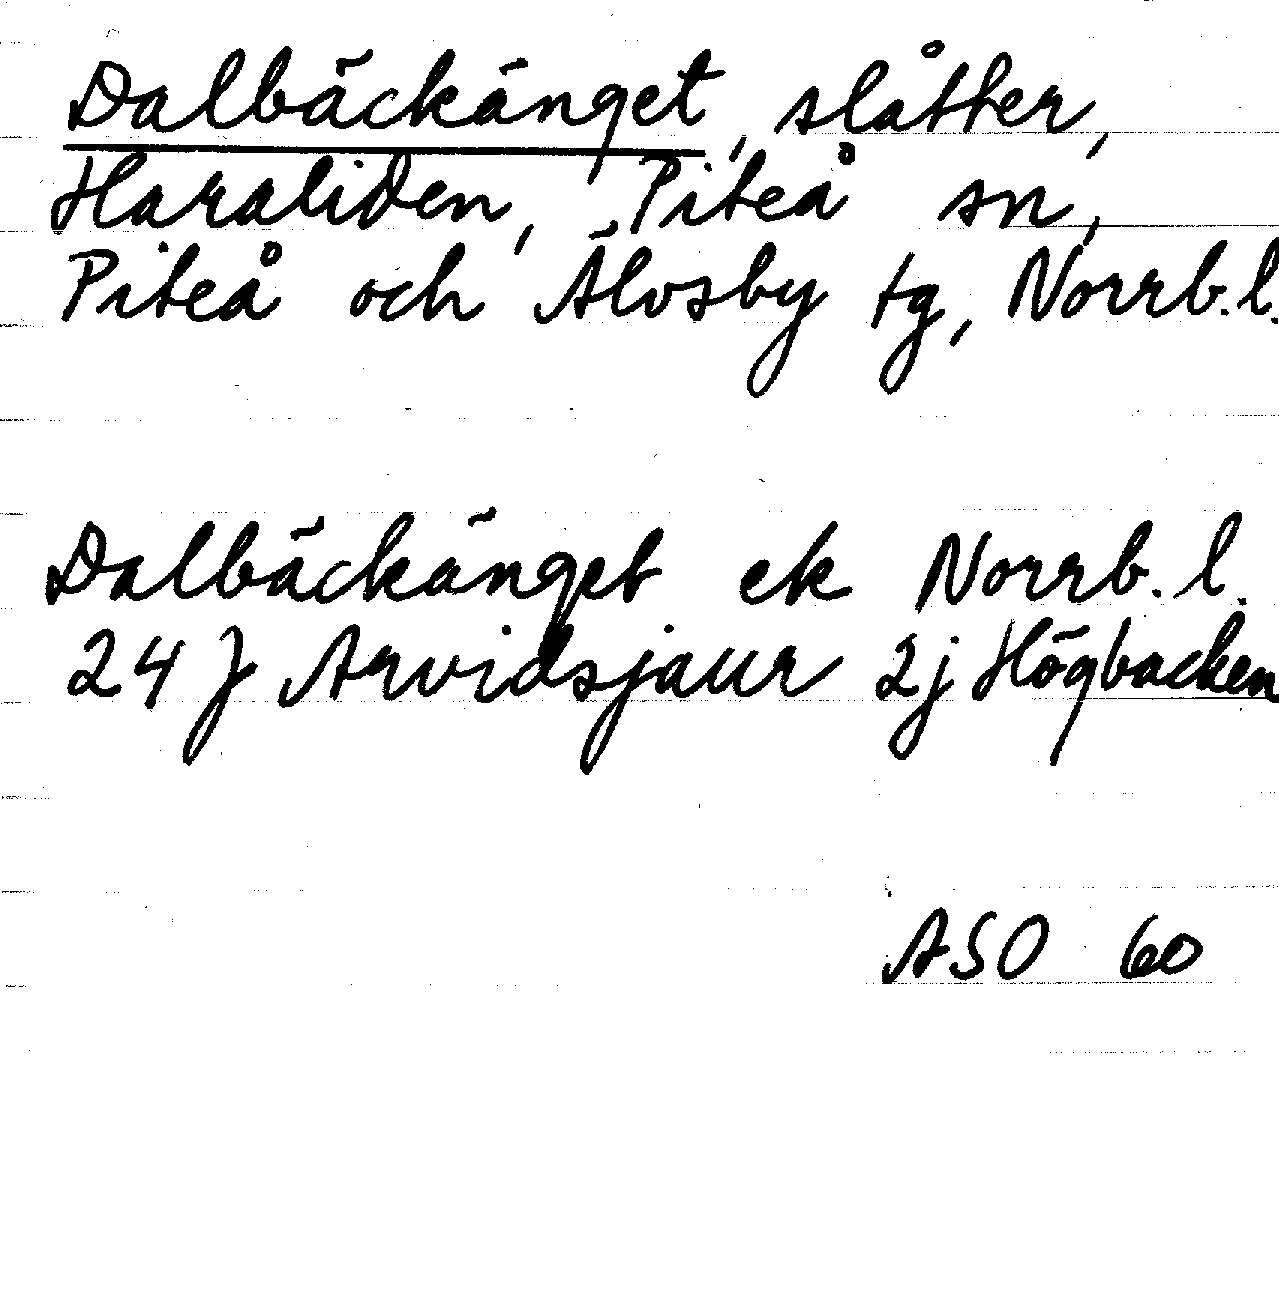 Dalbäckänget, slåtter,
Haraliden, Piteå sn,
Piteå och Älvsby tg, Norrb.l.
Dalbäckänget ek Norrb.l.
24 J Arvidsjaur 2j Högbacken
ASO 60